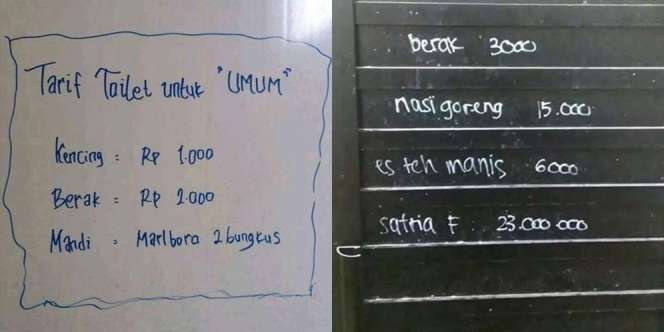 Tarif Toilet untuk "UMUM"
Kencing : Rp 1.000
Berak : Rp 2.000
Mandi : Marlboro 2 bungkus
berak 3000
nasi goreng 15.000
es teh manis 6000
satria F 23.000.000